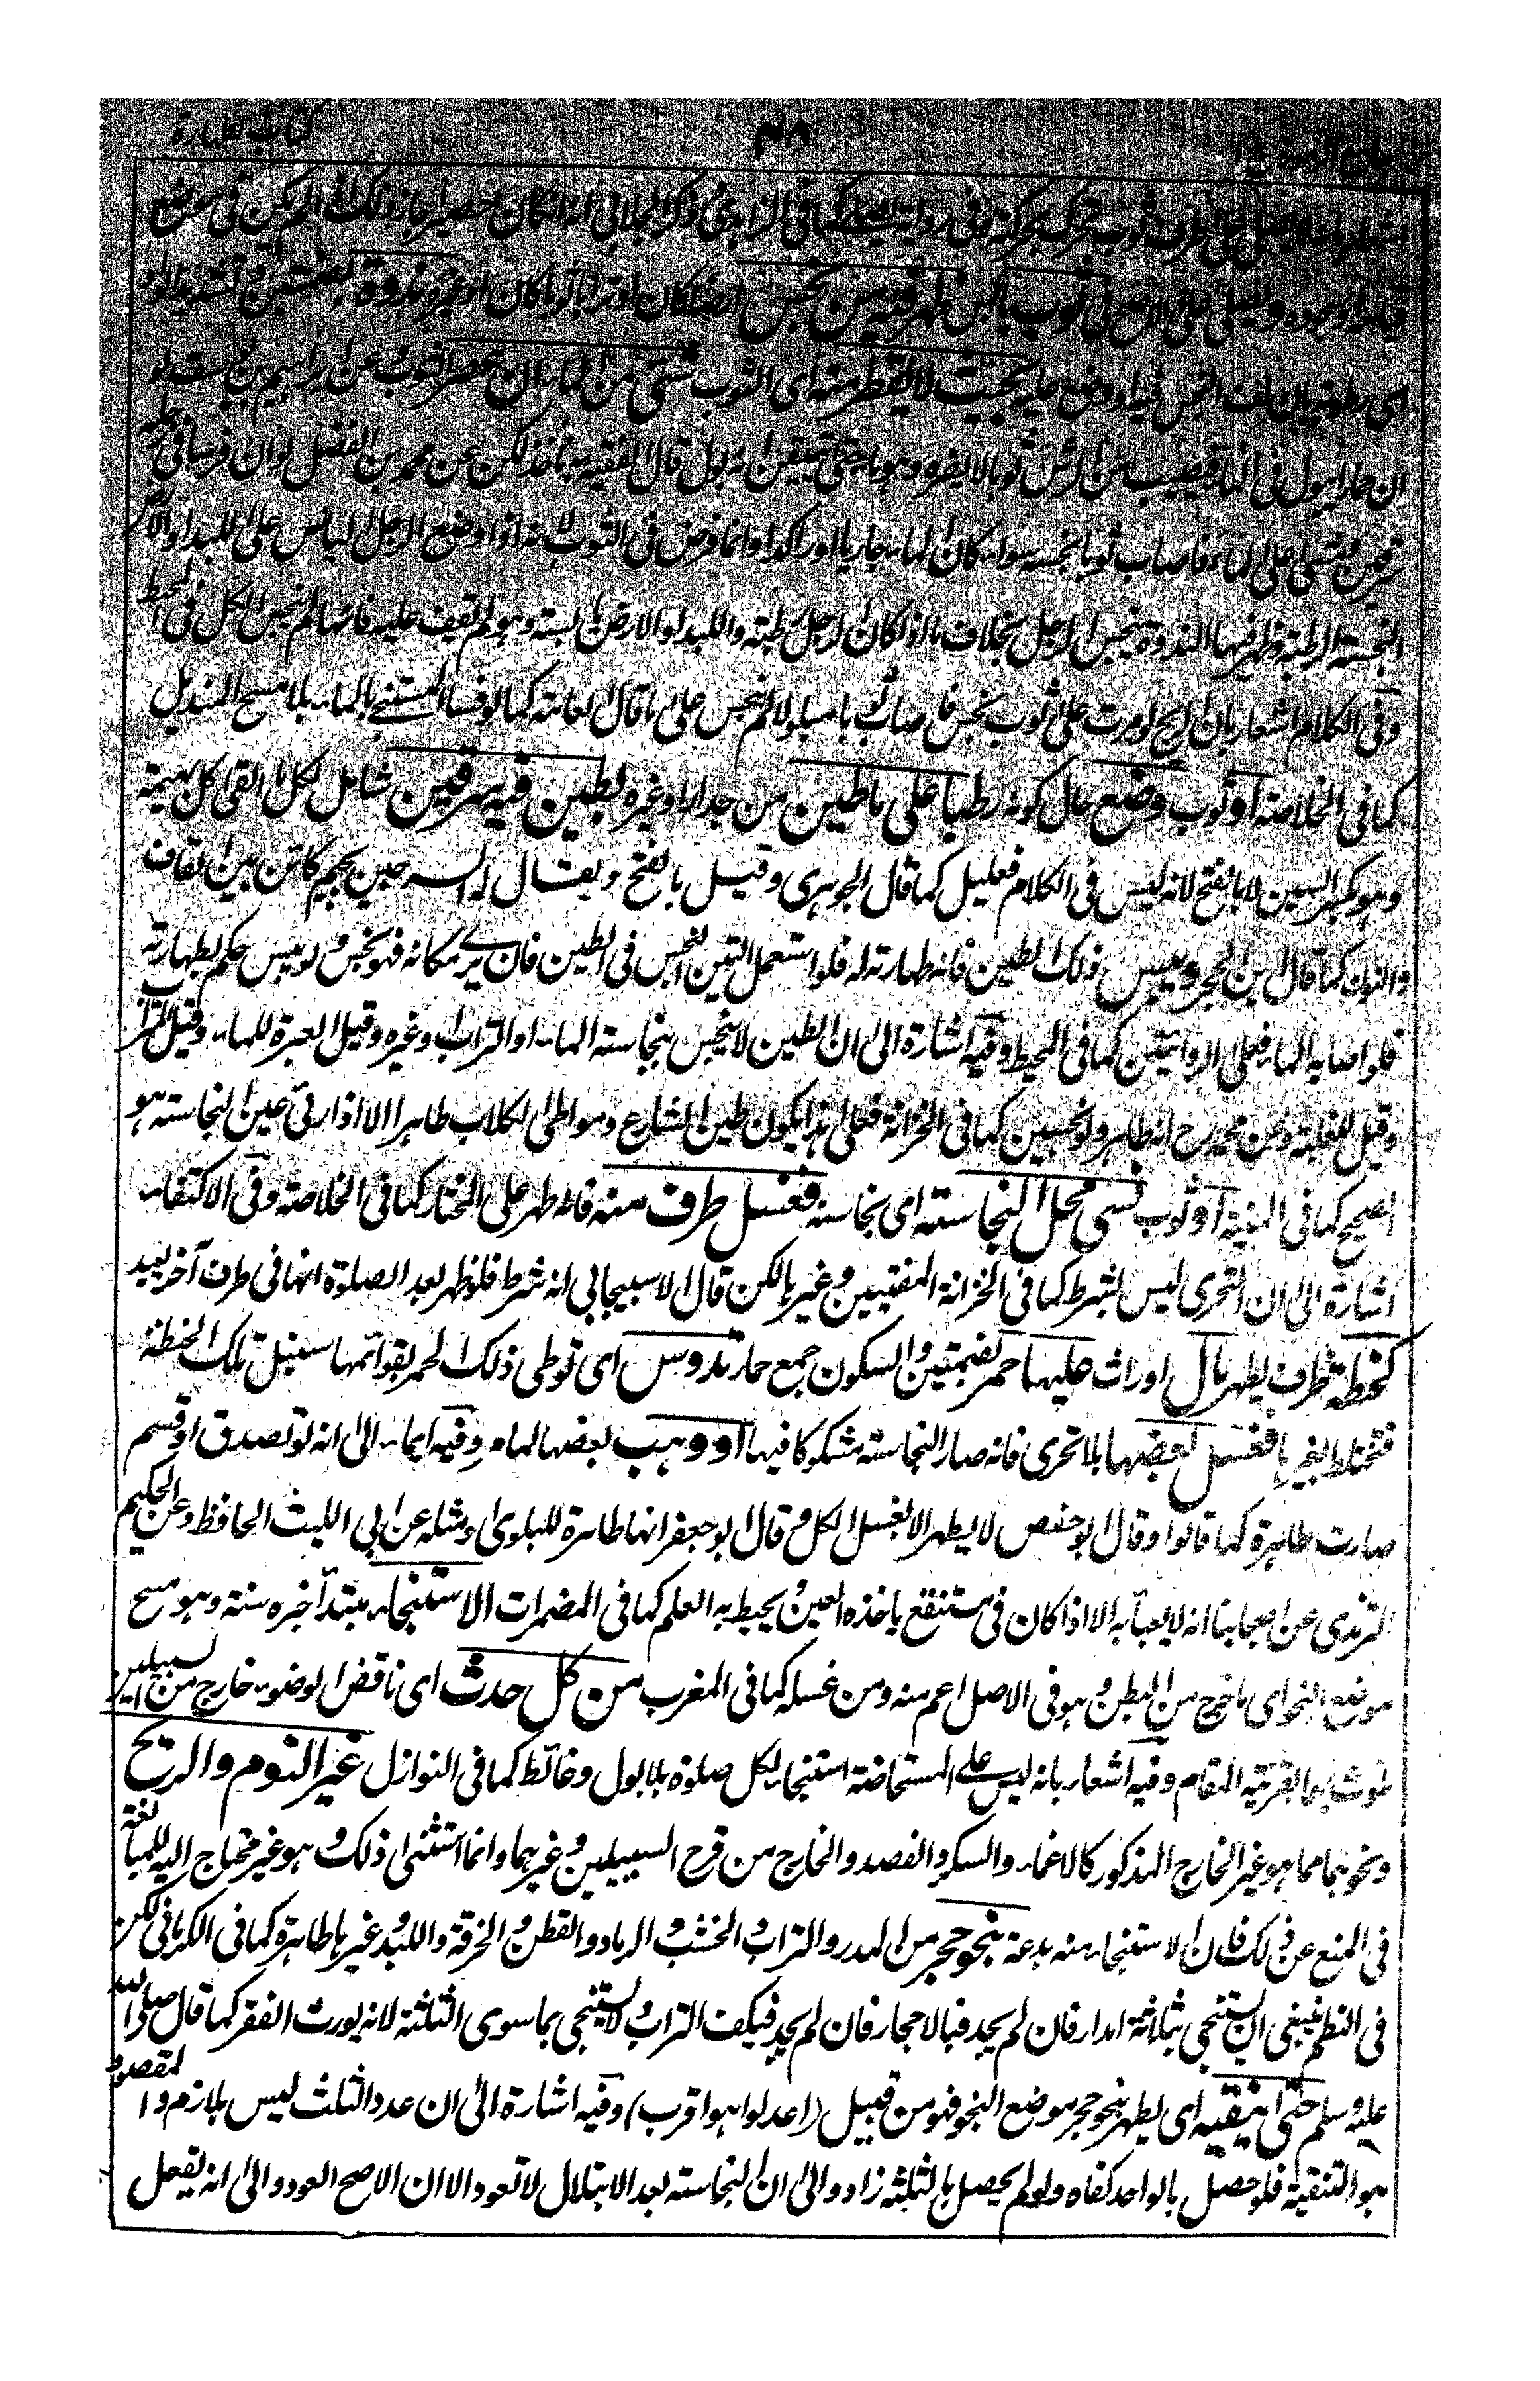 كتاب الطهارة
٤٨
جامع الرموز
اشعار بانه لا يصلى على طرف ثوب يتحرك بحركته وفى رواية يصلى كما فى الزاهدى وذكر الجلابى انه ان كان حصيرا جاز وذلك اذا لم يكن فى موضع
قيامه او سجوده ويصلى على الاصح فى ثوب يابس ظهر فيه من نجس ارضا كان او ترابا ثوبا كان او غيره ندوة بضمتين وتشديد الواو
اى رطوبة بان لف النجس فيه او وضع عليه بحيث لا يقطر منه اى الثوب شئ من الماء ان عصر الثوب عن ابراهيم بن يوسف لو
ان حمارا يبول فى الماء فيصيب من الرش ثوبا لا يضره وهو ما حتى يتيقن انه بول قال الفقيه به ناخذ لكن عن محمد بن الفضل لو ان فرسا فى رجله
سرقين فمشى على الماء فاصاب ثوبا نجسه سواء كان الماء جاريا او راكدا وانما فرض فى الثوب لانه اذا وضع الرجل اليابس على اللبد او الارض
النجسة الرطبة وظهر فيها الندوة ينجس الرجل بخلاف ما اذا كان الرجل رطبة واللبد او الارض يابسة وهو لم يقف عليه فانها لم ينجس الكل فى المحيط
وفى الكلام اشعار بان الريح لو مرت على ثوب نجس فاصاب ثوبا مبلولا لم ينجس على ما قال العامة كما لو فسا المستنجى بالماء بلا مسح المنديل
كما فى الخلاصة او ثوب وضع حال كونه رطبا على ما طين من جدار او غيره بطين فيه سرقين شامل لكل ما القى كل بهيمة
وهو بكسر السين لا بالفتح لانه ليس فى الكلام فعليل كما قال الجوهرى وقيل بالفتح ويقال له السرجين بجيم كائن بين القاف
والنون كما قال ابن الحجر ويبس ذلك الطين فانه طهارته له فلو استعمل التبن النجس فى الطين فان يرى مكانه فهو نجس ولو يبس حكم بطهارته
فلو اصابه الماء فعلى الروايتين كما فى المحيط وفيه اشارة الى ان الطين لا ينجس بنجاسة الماء او التراب وغيره وقيل العبرة للماء وقيل للتراب
وقيل للغلبة وعن محمد رح انه طاهر ولو نجسين كما فى الخزانة فعلى هذا يكون طين الشارع ومواطئ الكلاب طاهرا الا اذا رئى عين النجاسة هو
الصحيح كما فى المنية او ثوب نسى محل النجاسة اى نجاسته فغسل طرف منه فانه طهر على المختار كما فى الخلاصة وفى الاكتفاء
اشارة الى ان التحرى ليس بشرط كما فى الخزانة المفتيين وغيرها لكن قال الاسبيجابى انه شرط فلو ظهر بعد الصلوة انها فى طرف آخر يعيد
كحنطة ظرف يطهر بال او راث عليها حمر بضمتين والسكون جمع حمار تدوس اى توطى ذلك الحمر بقوائمها سنبل تلك الحنطة
فتختلط بغيرها فغسل بعضها بلا تحرى فانه صار النجاسة مشكوكا فيها او وهب بعضها لها وفيه ايماء الى انه لو تصدق او قسم
صارت طاهرة كما قالوا وقال ابو حفص لا يطهر الا بغسل الكل وقال ابو جعفر انها طاهرة للبلوى ومثله عن ابى الليث الحافظ وعن الحكيم
الترمذى عن اصحابنا انه لا يعبأ به الا اذا كان فى مستنقع ياخذه العين ويحيط به العلم كما فى المضمرات الاستنجاء مبتدأ خبره سنة وهو مسح
موضع النجو اى ما خرج من البطن وهو فى الاصل اعم منه ومن غسله كما فى المغرب من كل حدث اى ناقض الوضوء خارج من السبيلين
ملوث بهما بقرينة المقام وفيه اشعار بانه ليس على المستحاضة استنجاء لكل صلوة بلا بول وغائط كما فى النوازل غير النوم والريح
ونحوهما مما هو غير الخارج المذكور كالاغماء والسكر والفصد والخارج من قرح السبيلين وغيرهما وانما استثنى ذلك وهو غير محتاج اليه للمبالغة
فى المنع عن ذلك فان الاستنجاء منه بدعة بنحو حجر من المدر والتراب والخشب والرماد والقطن والخرقة واللبد وغيرها طاهرة كما فى الكرمانى لكن
فى النظم ينبغى ان يستنجى بثلاثة امدار فان لم يجد فبالاحجار فان لم يجد فبكف التراب ولا يستنجى بما سوى الثلثة لانه يورث الفقر كما قال صلى الله
عليه وسلم حتى ينقيه اى يطهر بنحو حجر موضع النجو فهو من قبيل (اعدلوا هو اقرب) وفيه اشارة الى ان عدد الثلث ليس بلازم والمقصود
هو التنقية فلو حصل بالواحد كفاه ولو لم يحصل بالثلثة زاد والى ان النجاسة بعد الابتلال لا تعود الا ان الاصح العود والى انه يفعل